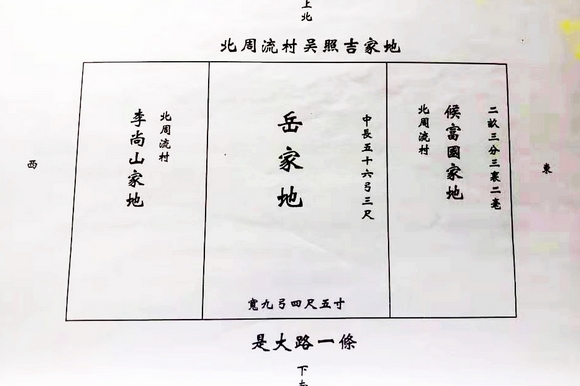 上北
北周流村吴照吉家地
東
二畝三分三裏二毫
候富國家地
北周流村
中長五十六弓三尺
岳家地
寬九弓四尺五寸
北周流村
李尚山家地
西
是大路一條
下